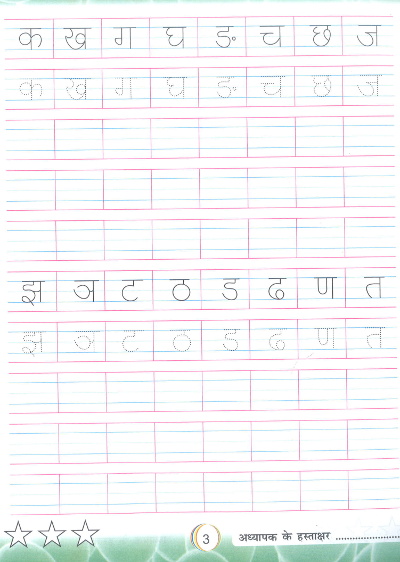 क ख ग घ ङ च छ ज
क ख ग घ ङ च छ ज
झ ञ ट ठ ड ढ ण त
झ ञ ट ठ ड ढ ण त
3 अध्यापक के हस्ताक्षर ....................